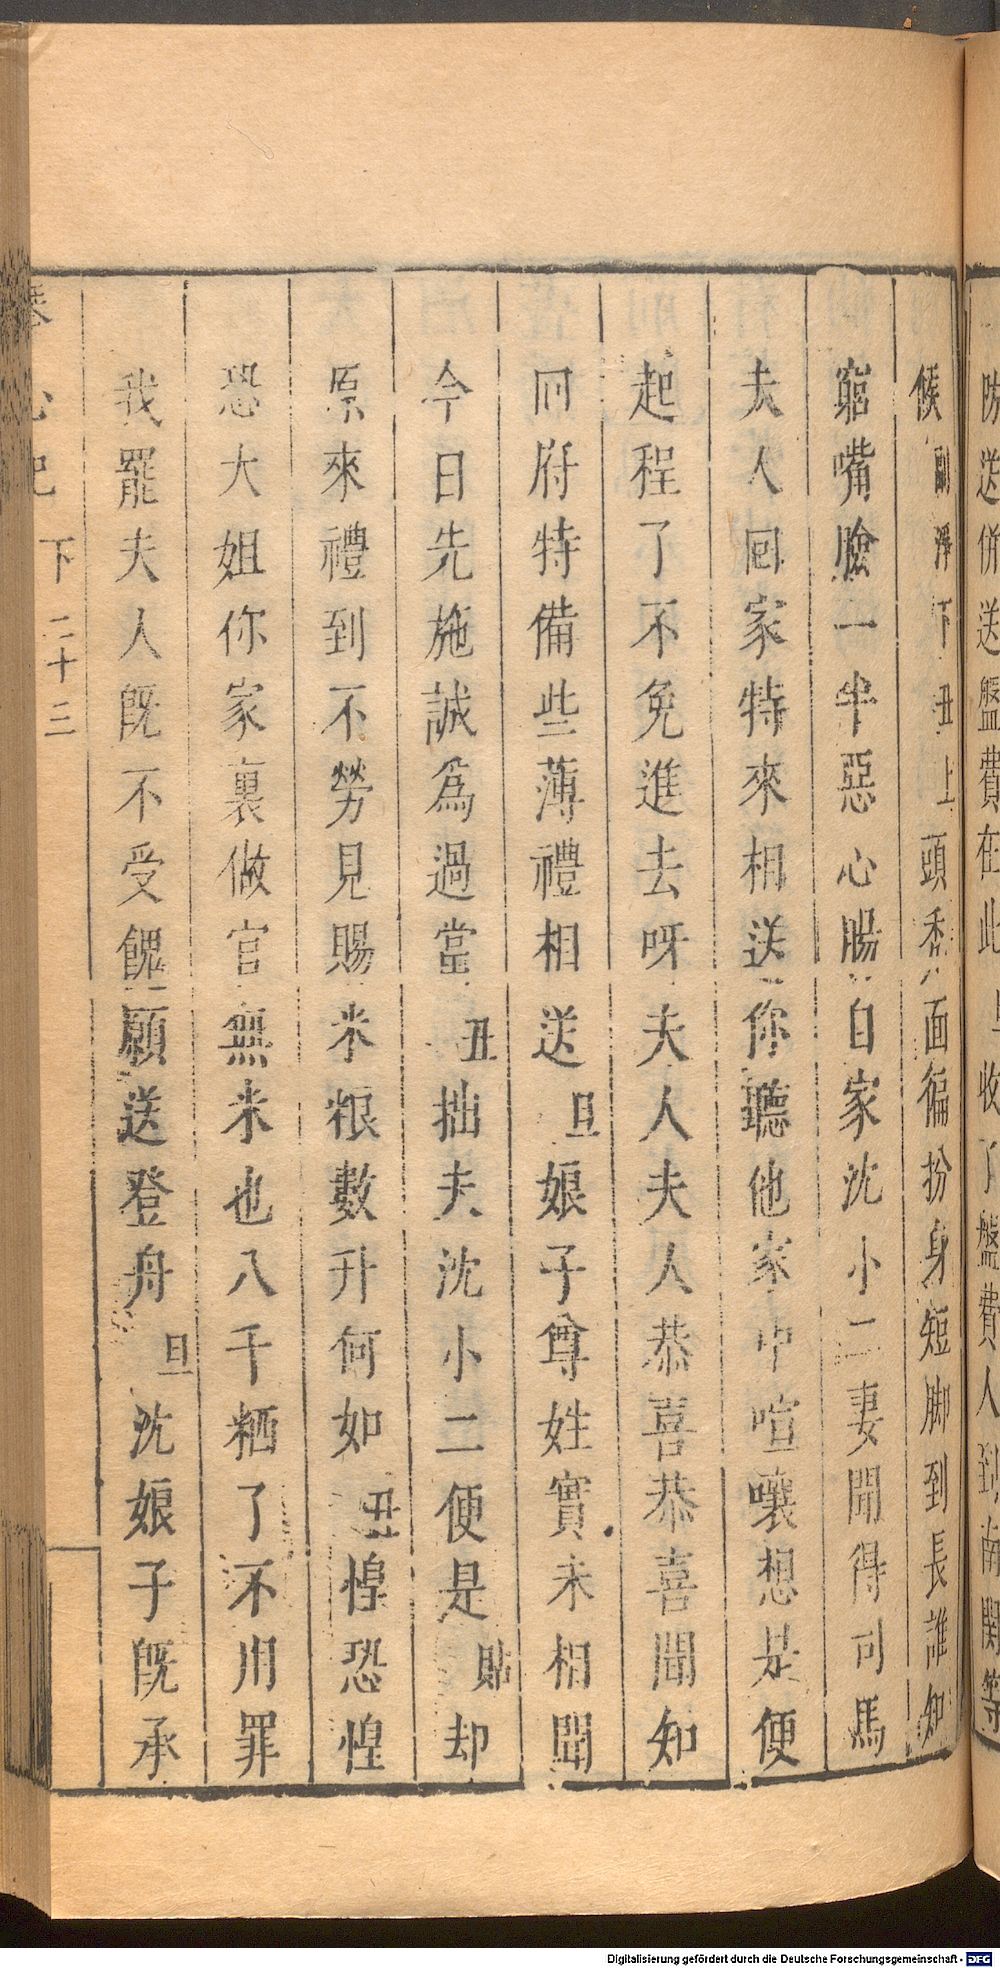 防送併送盤費在此旦收了盤費人到南關等
候副淨下丑上頭黍面徧扮身短脚到長誰知
窮嘴臉一半惡心腸自家沈小二妻聞得司馬
夫人囘家特來相送你聽他家中喧嚷想是便
起程了不免進去呀夫人夫人恭喜恭喜聞知
囘府特備些薄禮相送旦娘子尊姓實未相聞
今日先施誠爲過當丑拙夫沈小二便是貼却
原來禮到不勞見賜米粮數升何如丑惶恐惶
恐大姐你家裏做官無米也八千粞了不用罪
我罷夫人旣不受餽願送登舟旦沈娘子旣承
下 二十三
Digitalisierung gefördert durch die Deutsche Forschungsgemeinschaft - DFG